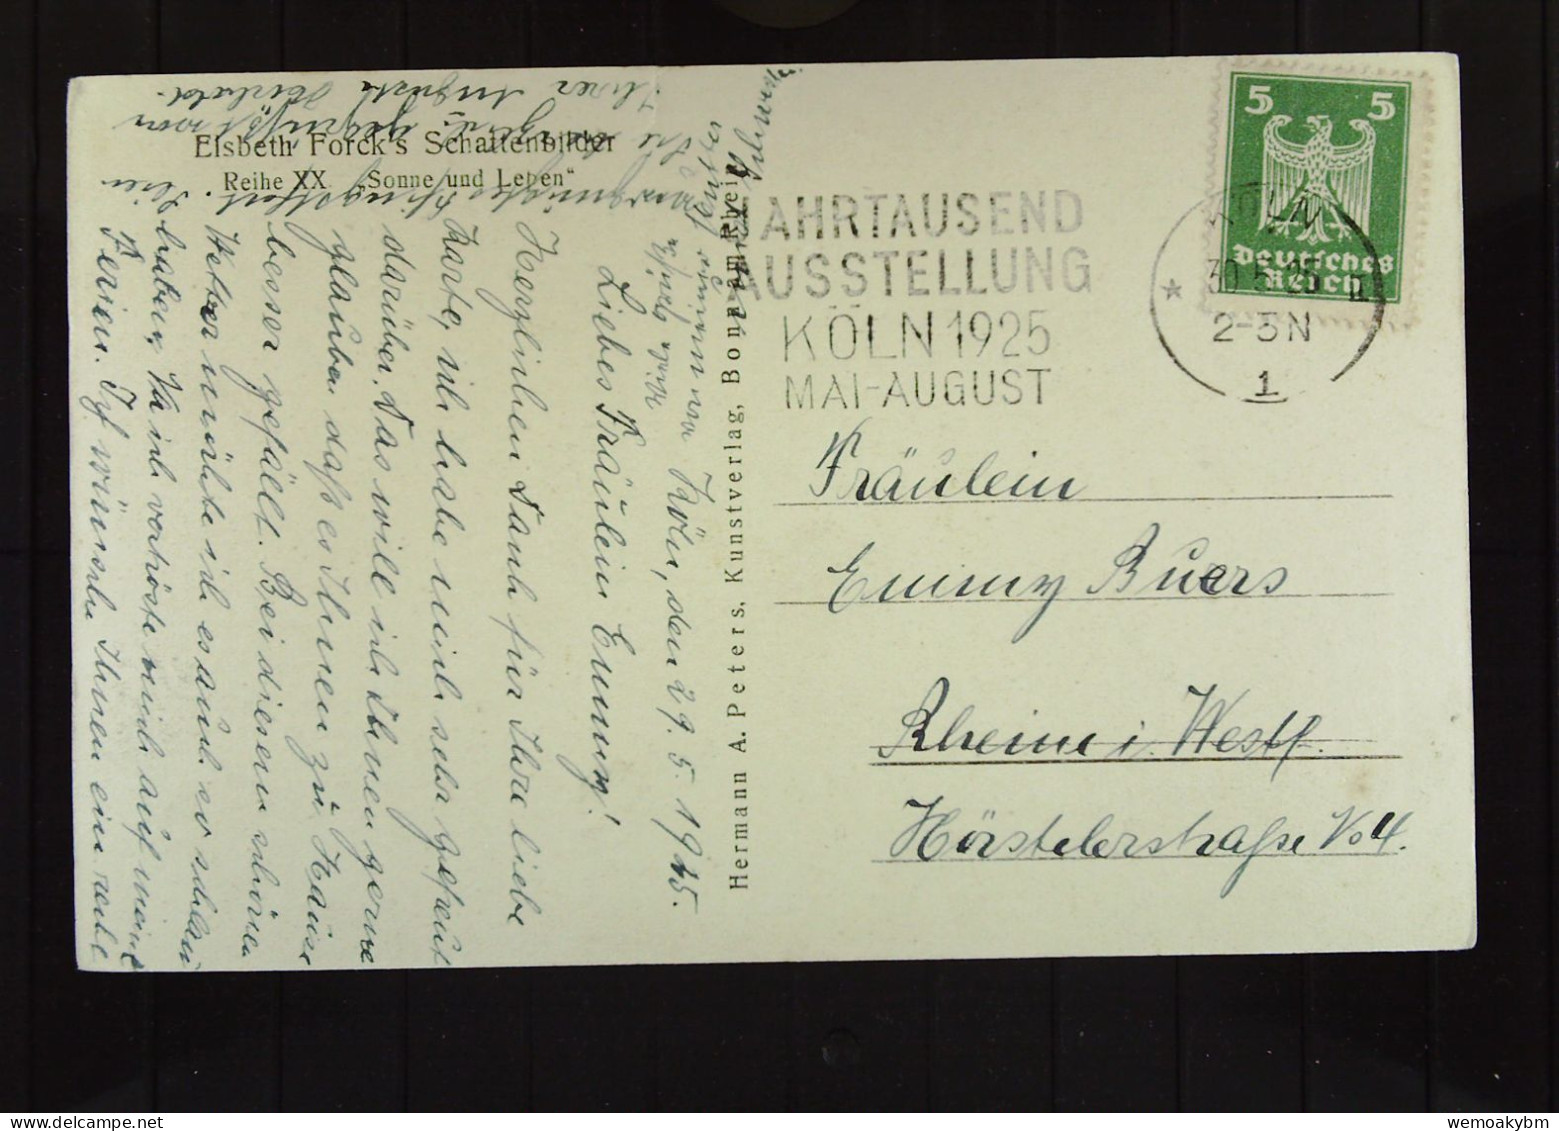 Elsbeth Forck's Schattenbilder
Reihe XX „Sonne und Leben"
Hermann A. Peters, Kunstverlag, Bonn am Rhein
JAHRTAUSEND
AUSSTELLUNG
KÖLN 1925
MAI-AUGUST
KÖLN
* 30.5.25 11
2-3N
1
5 5
Deutsches
Reich
Fräulein
Emmy Buers
Rheine i. Westf.
Hörstelerstraße No 4.
Köln, den 29. 5. 1925.
Liebes Fräulein Emmy!
Herzlichen Dank für Ihre liebe
Karte, ich habe mich sehr gefreut
darüber. Das will ich Ihnen gerne
glauben daß es Ihnen zu Hause
besser gefällt. Bei diesem schönen
Wetter möchte ich es auch so schön
haben, Na ich vertröste mich auf meine
Ferien. Ich wünsche Ihnen ein recht
vergnügtes Pfingstfest.
Sie
gegrüßt von
Ihrer Auguste
wemoakybm